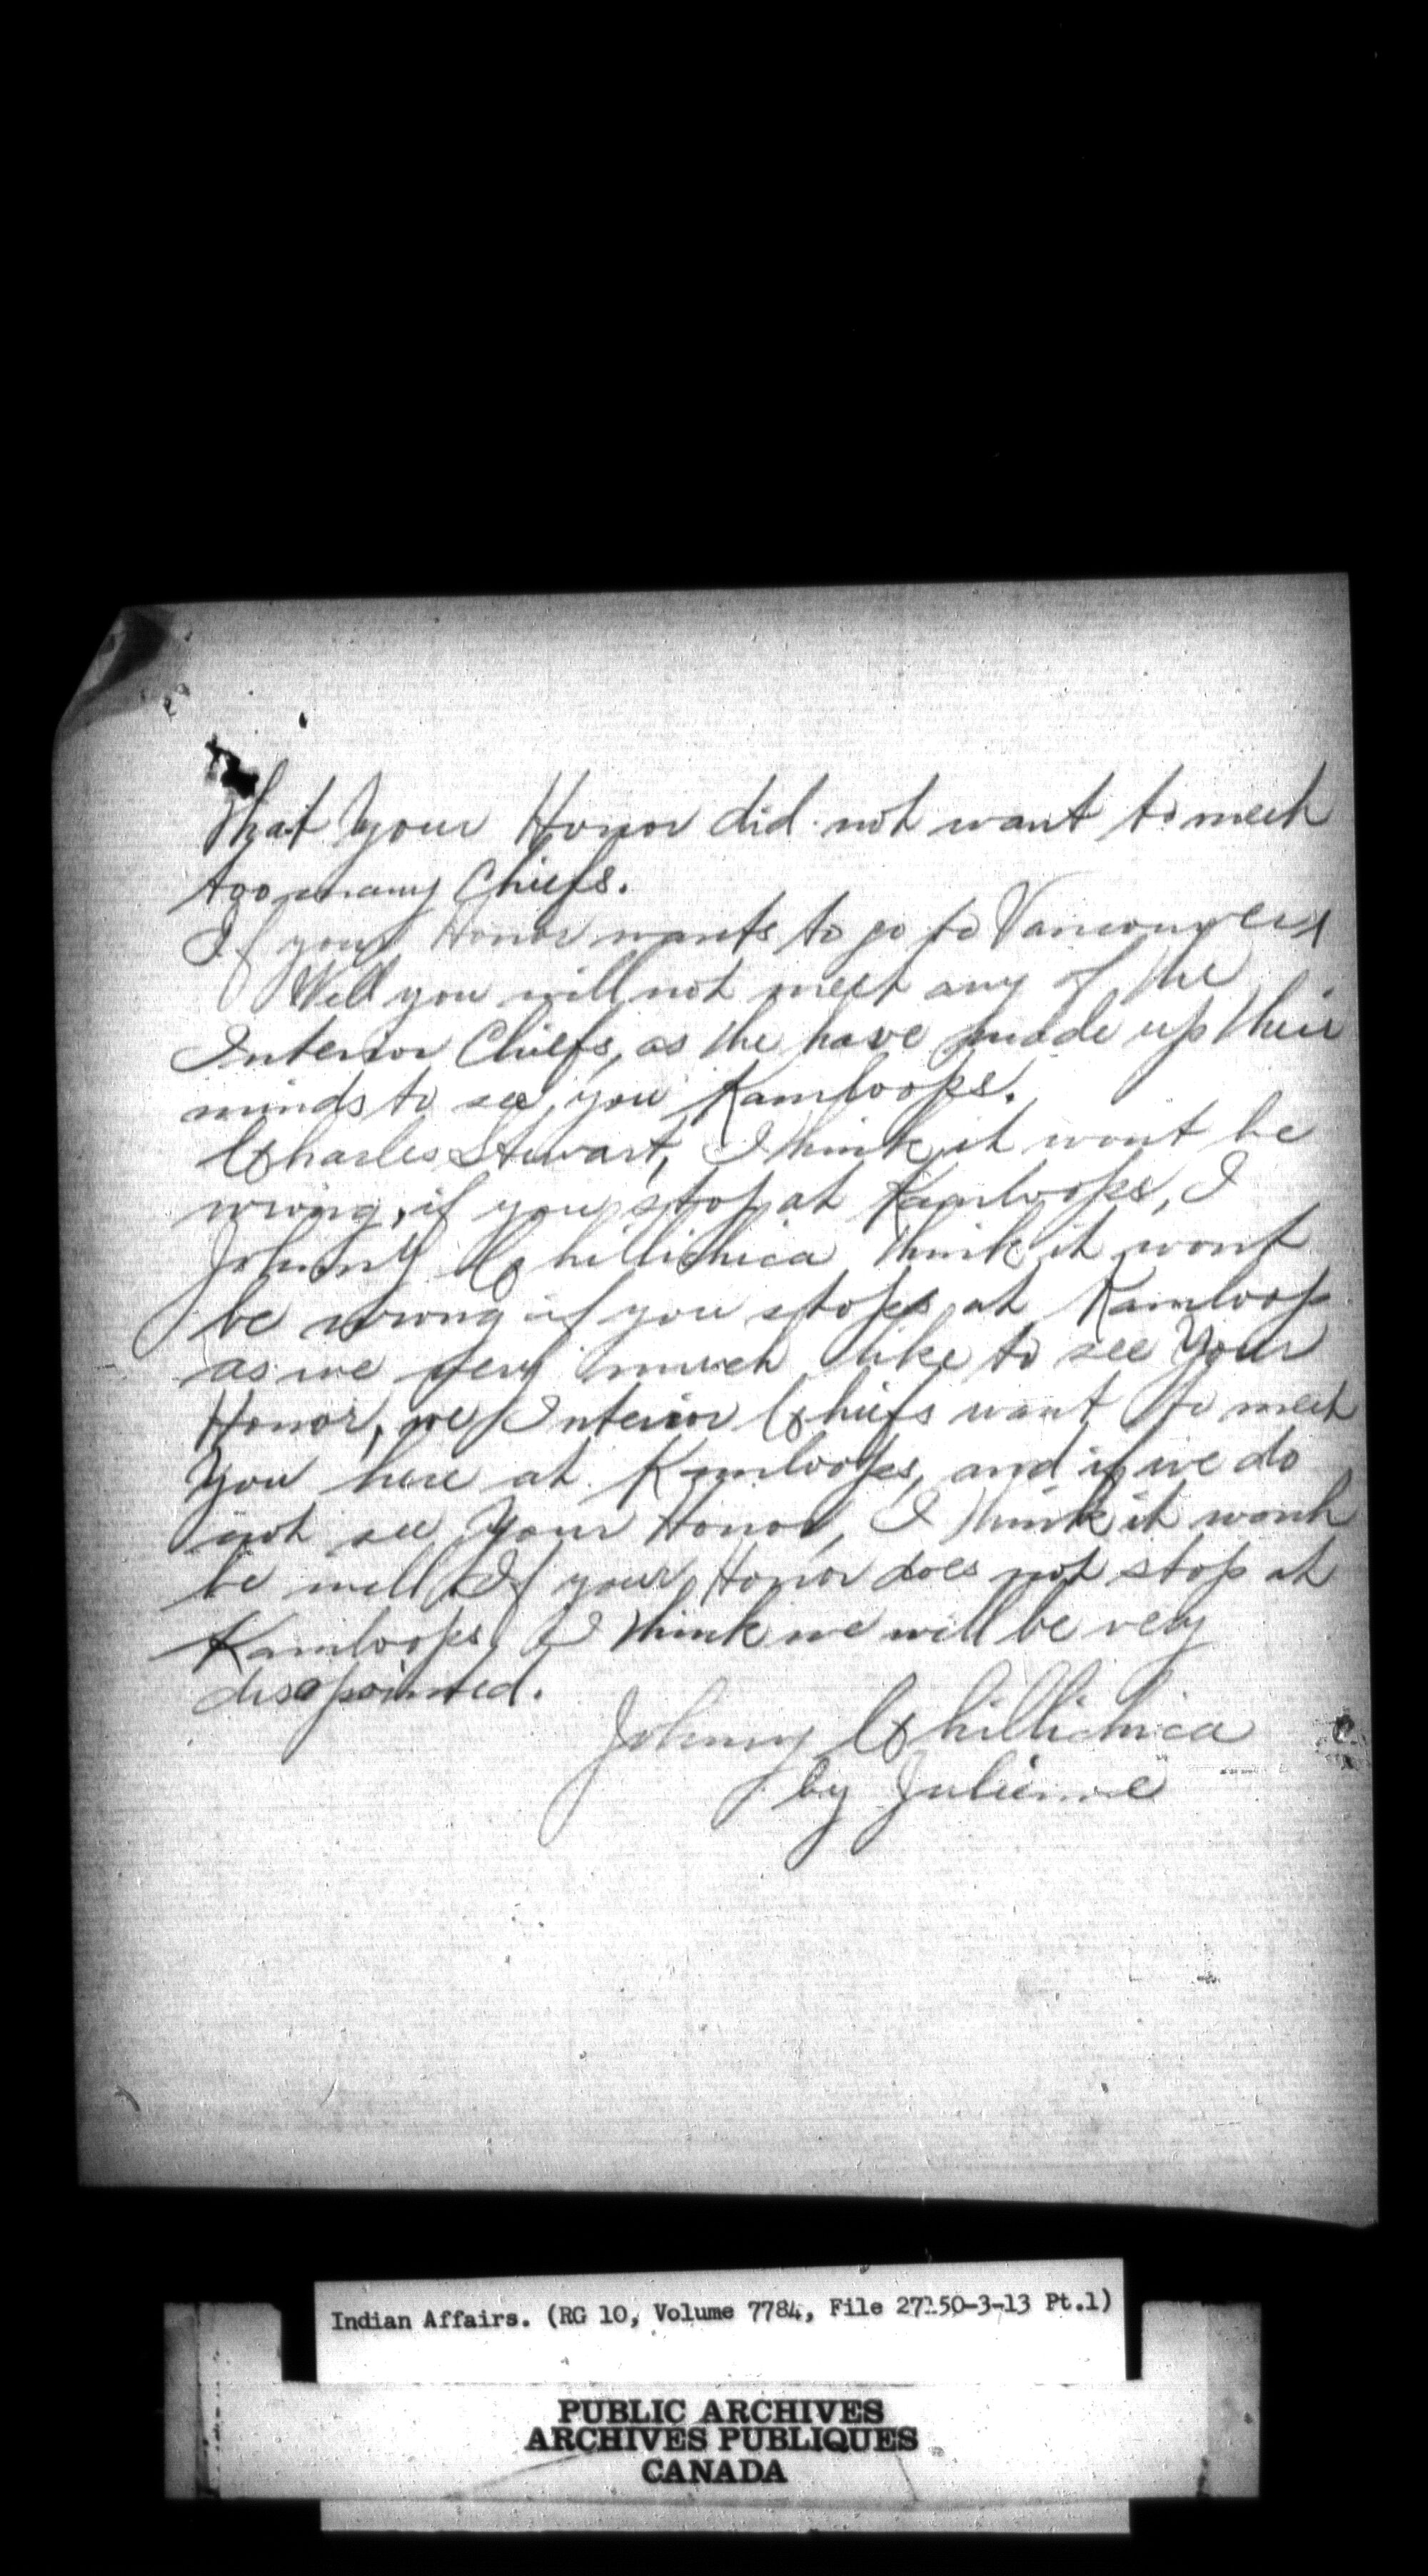 That Your Honor did not want to meet
too many Chiefs.
If your Honor wants to go to Vancouver
Well you will not meet any of the
Interior Chiefs, as the have made up their
minds to see you Kamloops.
Charles Stewart, I think it wont be
wrong, if you stop at Kamloops, I
Johnny Chillichica think it wont
be wrong if you stops at Kamloop
as we very much like to see Your
Honor, we Interior Chiefs want to meet
You here at Kamloops, and if we do
not see Your Honor, I think it wont
be well If your Honor does not stop at
Kamloops, I think we will be very
disapointed.
Johnny Chillichica
by Julienne
Indian Affairs. (RG 10, Volume 7784, File 27150-3-13 Pt.1)
PUBLIC ARCHIVES
ARCHIVES PUBLIQUES
CANADA